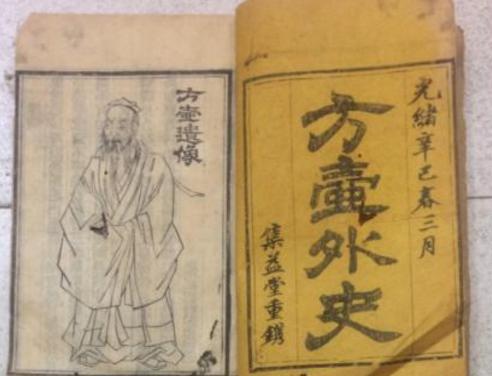 光緒辛巳春三月
方壺外史
集益堂重鐫
方壺遺像